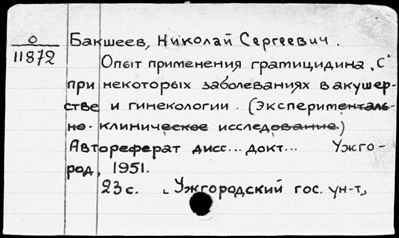 О
11872
Бакшеев, Николай Сергеевич.
Опыт применения грамицидина „С"
при некоторых заболеваниях в акушер-
стве и гинекологии. (Эксперименталь-
но-клиническое исследование.)
Автореферат дисс... докт... Ужго-
род, 1951.
23с. „Ужгородский гос. ун-т„